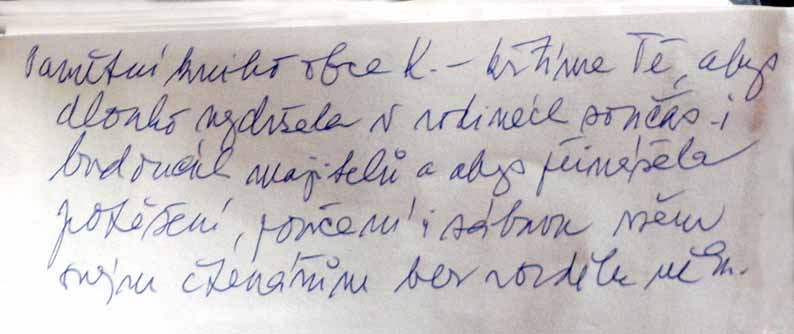 Pamětní kniho obce K. – křtíme Tě, abys
dlouho vydržela v rodinách součas. i
budoucích majitelů a abys přinášela
potěšení, poučení i zábavu všem
svým čtenářům bez rozdílu